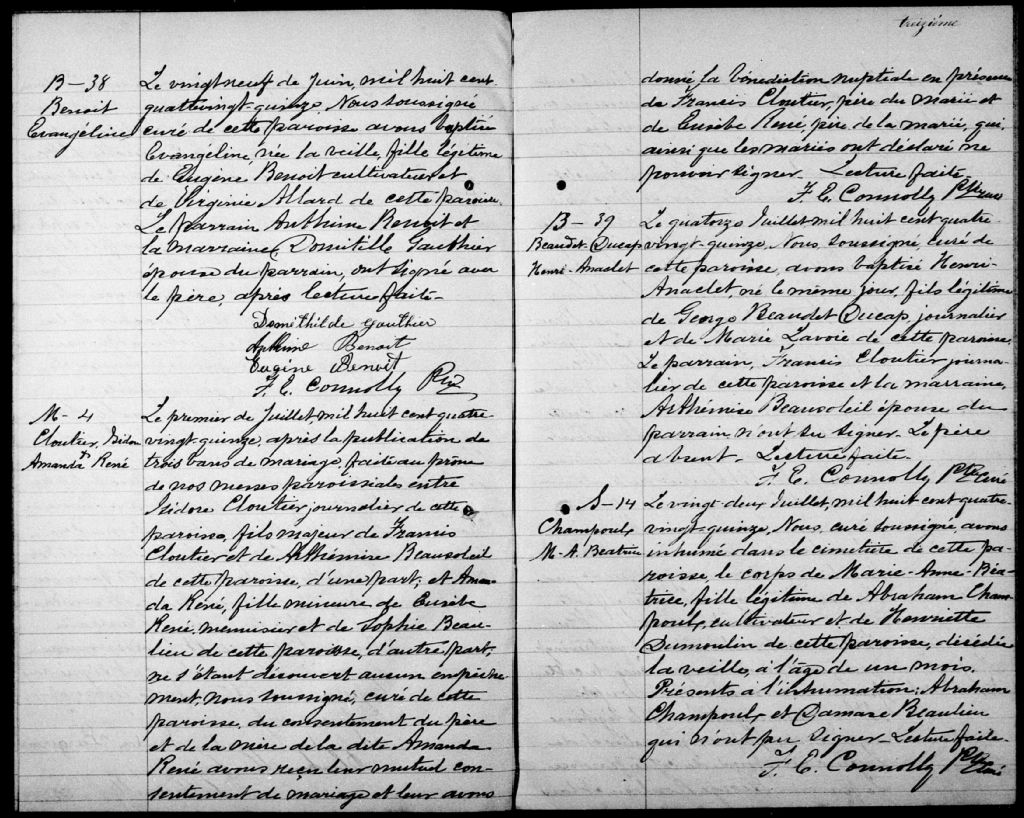 B-38
Benoit
Evangéline
Le vingt neuf de Juin, mil huit cent
quatrevingt-quinze, Nous soussigné
curé de cette paroisse avons baptisé
Evangéline, née la veille, fille légitime
de Eugène Benoit cultivateur et
de Virginie Allard de cette paroisse.
Le parrain Anthime Benoit et
la marraine, Domitille Gauthier
épouse du parrain, ont signé avec
le père, après lecture faite-
Domithilde Gauthier
Anthime Benoit
Eugène Benoit
F. E. Connolly Ptre
M-4
Cloutier, Isidore
&
Amanda René
Le premier de Juillet, mil huit cent quatre-
vingt-quinze, après la publication de
trois bans de mariage, faite au prône
de nos messes paroissiales entre
Isidore Cloutier journalier de cette
paroisse, fils majeur de Francis
Cloutier et de Arthémise Beausoleil
de cette paroisse, d'une part; et Aman-
da René, fille mineure de Eusèbe
René, menuisier et de Sophie Beau-
lieu de cette paroisse, d'autre part,
ne s'étant découvert aucun empêche-
ment, nous soussigné, curé de cette
paroisse, du consentement du père
et de la mère de la dite Amanda
René avons reçu leur mutuel con-
sentement de mariage et leur avons
treizième
donné la bénédiction nuptiale en présence
de Francis Cloutier, père du marié et
de Eusèbe René, père de la mariée, qui,
ainsi que les mariés ont déclaré ne
pouvoir signer- Lecture faite-
F. E. Connolly Ptre
B-39
Beaudet-Ducap
Henri-Anaclet
Le quatorze Juillet mil huit cent quatre-
vingt-quinze, Nous, soussigné, curé de
cette paroisse, avons baptisé Henri-
Anaclet, né le même jour, fils légitime
de George Beaudet Ducap, journalier
et de Marie Lavoie de cette paroisse.
Le parrain, Francis Cloutier journa-
lier de cette paroisse et la marraine,
Arthémise Beausoleil épouse du
parrain n'ont su signer- Le père
absent- Lecture faite-
F. E. Connolly Ptre Curé
S-14
Champoux
M-A. Béatrice
Le vingt-deux Juillet, mil huit cent quatre-
vingt-quinze, Nous, curé soussigné avons
inhumé dans le cimetière de cette pa-
roisse, le corps de Marie-Anne-Béa-
trice, fille légitime de Abraham Cham-
poux, cultivateur et de Henriette
Dumoulin de cette paroisse, décédée
la veille, à l'âge de un mois.
Présents à l'inhumation: Abraham
Champoux et Damase Beaulieu
qui n'ont pu signer- Lecture faite-
F. E. Connolly Ptre Curé